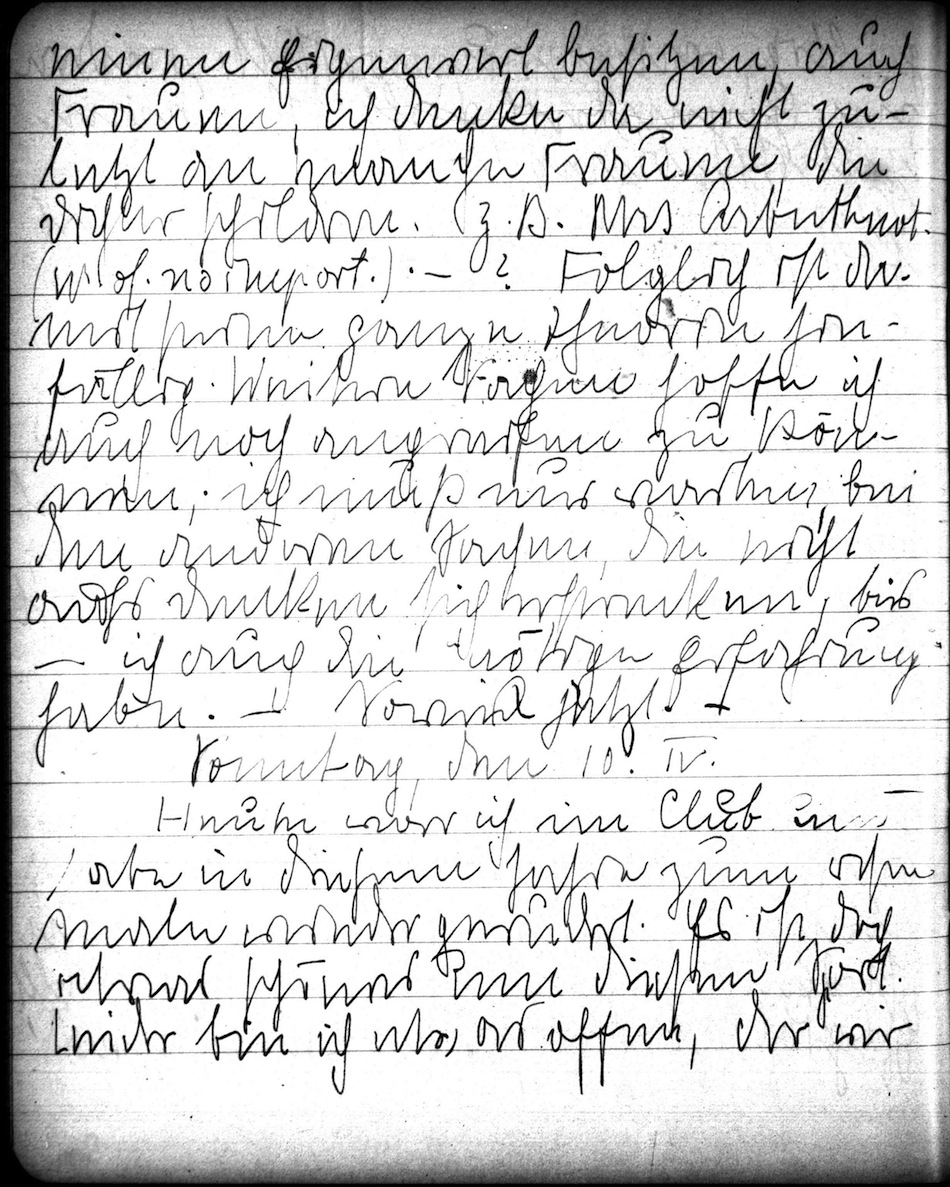 einen Eigenwert besitzen, auch
Frauen, ich denke da nicht zu-
letzt an manche Frauen, die
Dichter schildern. (z.B. Mrs Arbuthnot.
(W. of. no import.) . – ? Folglich ist da-
mit seine ganze Theorie hin-
fällig. Weitere Sachen hoffe ich
auch noch angreifen zu kön-
nen; ich muß nur warten, bei
den anderen Sachen, die nicht
aufs Denken sich beschränken, bis
– ich auch die nötige Erfahrung
habe. – Soviel jetzt –
Sonntag, den 10. IV.
Heute war ich im Club und
habe in diesem Jahre zum ersten
Male wieder gerudert. Es ist doch
etwas schönes um diesen Sport.
Leider bin ich etwas offen, da wir